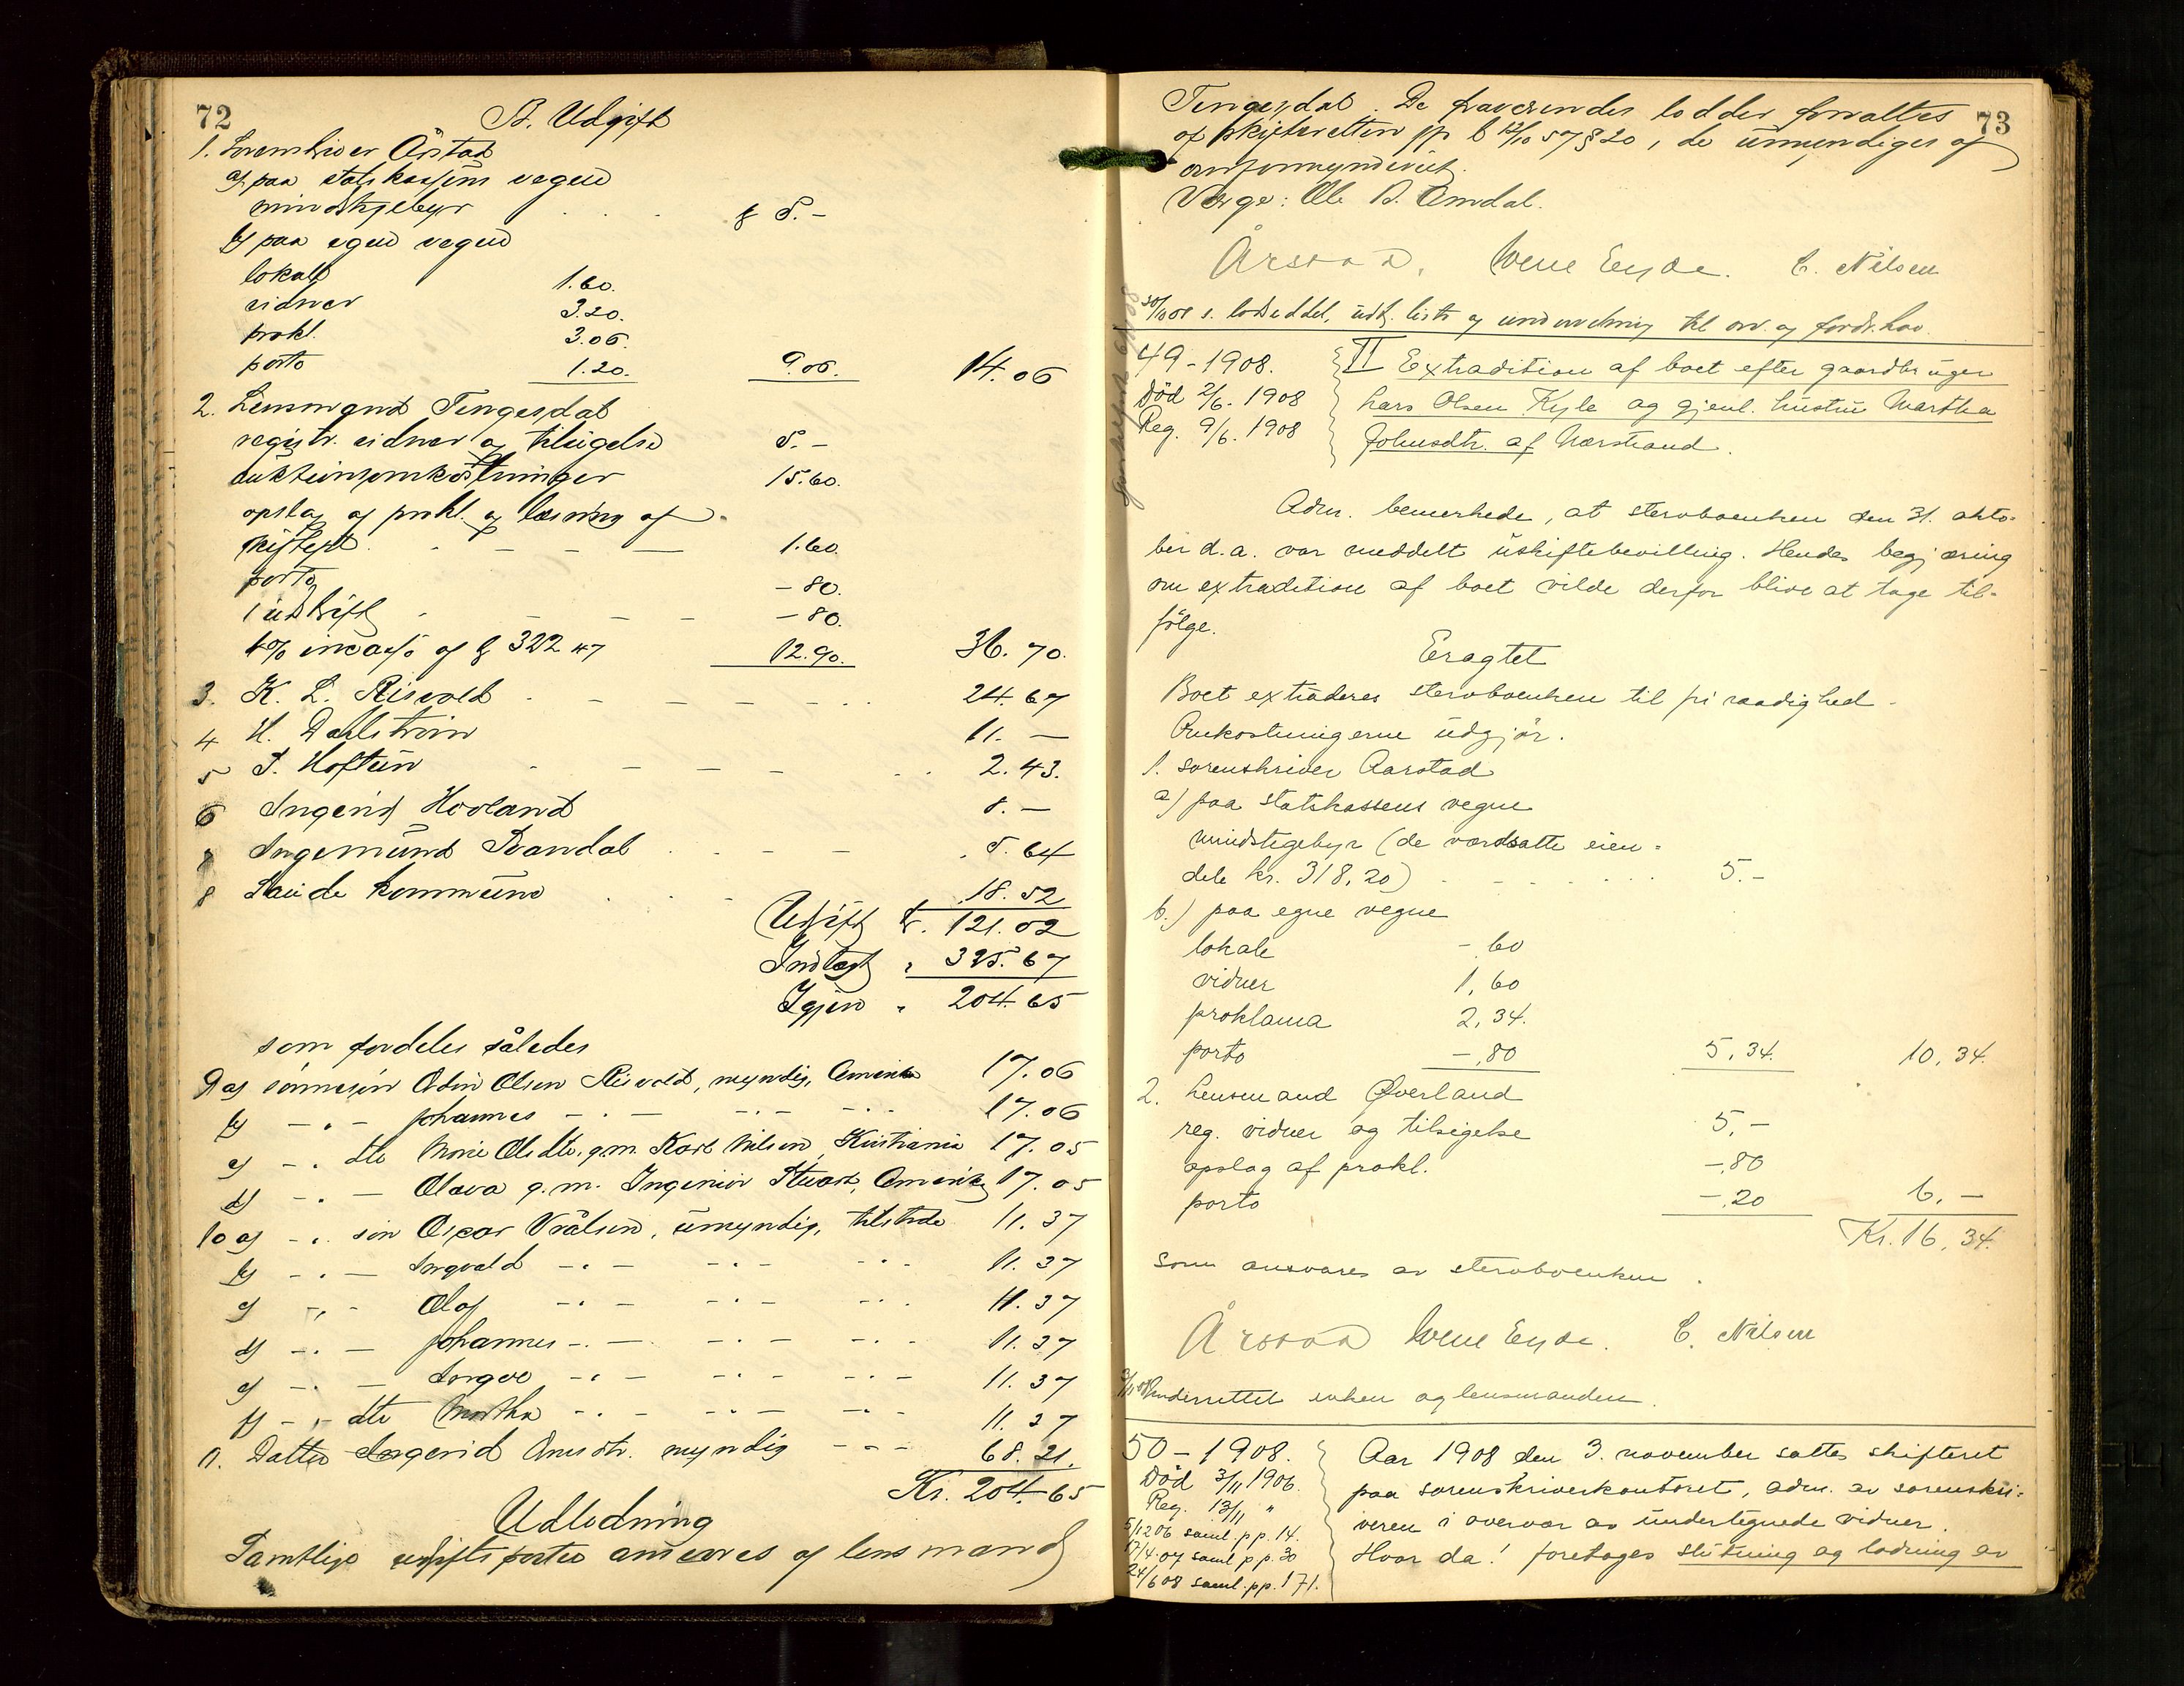 72
B. Udgift
1. Sorenskriver Årstad
a) paa statskassens vegne
mindstegebyr . . . kr 5.-
b) paa egne vegne
lokale 1.60.
vidner 3.20.
prokl. 3.06.
porto 1.20. 9.06. 14.06
2. Lensmand Tengesdal
registr. vidner og tilsigelse 5.-
auktionsomkostninger 15.60.
opslag af prokl. og læsning af
skiftept. - - - 1.60.
porto - 80.
1 udskrift - - - - 80.
4% incasso af kr 322 47 12.90. 36.70.
3. K. L. Risvold - - - - - . . . 24.67
4 H. Dahlstrøm 11. —
5 T. Hoftun - - - - . . 2.43.
6 Ingerid Hovland 8. —
7 Ingemund Svandal . . - - . 5.64
8 Saude kommune . . - 18.52
Udgift kr. 121.02
Indtægt " 325.67
Igjen " 204.65
som fordeles således
9 a) sønnesøn Odin Olsen Risvold, myndig, Amerika 17.06
b) - . - Johannes - . - - . - - . . 17.06
c) - . dtr Marie Olsdtr. g.m. Karl Nilsen, Kristiania 17.05
d) - . - Olava g.m. Ingeniør Stuart, Amerika 17.05
10 a) - . søn Oscar Vrålsen, umyndig, tilstede 11.37
b) - . - Ingvald - . - - . - - . . 11.37
c) - . - Olaf - . - - . - - . . 11.37
d) - . - Johannes - . - - . - - . . 11.37
e) - . - Torger - . - - . - - . - 11.37
f) - . dtr Martha - . - - . - - . - 11.37
11. Datter Ingerid Amsdtr. myndig - . - 68.21.
Kr. 204.65
Udlodning
Samtlige udgiftsposter ansvares af lensmand
73
Tengesdal. De fraværendes lodder forvaltes
af skifteretten jfr l 12/10 57 § 20, de umyndiges af
overformynderiet.
Verge: Ole A. Amdal.
Årstad, Wene Eyde. C. Nilsen
30/10 08 s. lodseddel, udtg. liste og underretning til ov. og fordr.hav.
49-1908.
Død 2/6. 1908
Reg. 9/6. 1908
II Extradition af boet efter gaardbruger
Lars Olsen Kyle og gjenl. hustru Martha
Johnsdtr. af Nærstrand.
Adm. bemerkede, at stervboenken den 31. okto-
ber d.a. var meddelt uskiftebevilling. Hendes begjæring
om extradition af boet vilde derfor blive at tage til-
følge.
Eragtet
Boet extraderes stervboenken til fri raadighed.
Omkostningerne udgjør.
1. sorenskriver Aarstad
a) paa statskassens vegne
mindstegebyr (de værdsatte eien-
dele kr. 318,20) . - - . . . . 5.-
b.) paa egne vegne
lokale -.60
vidner 1,60
proklama 2,34.
porto -.80 5,34. 10,34.
2. Lensmand Øverland
reg. vidner og tilsigelse 5,-
opslag af prokl. -,80
porto -,20 6.-
Kr. 16,34.
som ansvares av stervboenken.
Årstad Wene Eyde. C. Nilsen
Underrettet enken og lensmanden.
50-1908.
Død 3/11 1906.
Reg. 13/11 "
5/12 06 saml. pp. 14.
17/4 07 saml pp. 30
24/6 08 saml. pp. 171.
Aar 1908 den 3. november sattes skifteret
paa sorenskriverkontoret, adm. av sorenskri-
veren i overvær av undertegnede vidner.
Hvor da! foretages slutning og lodning av